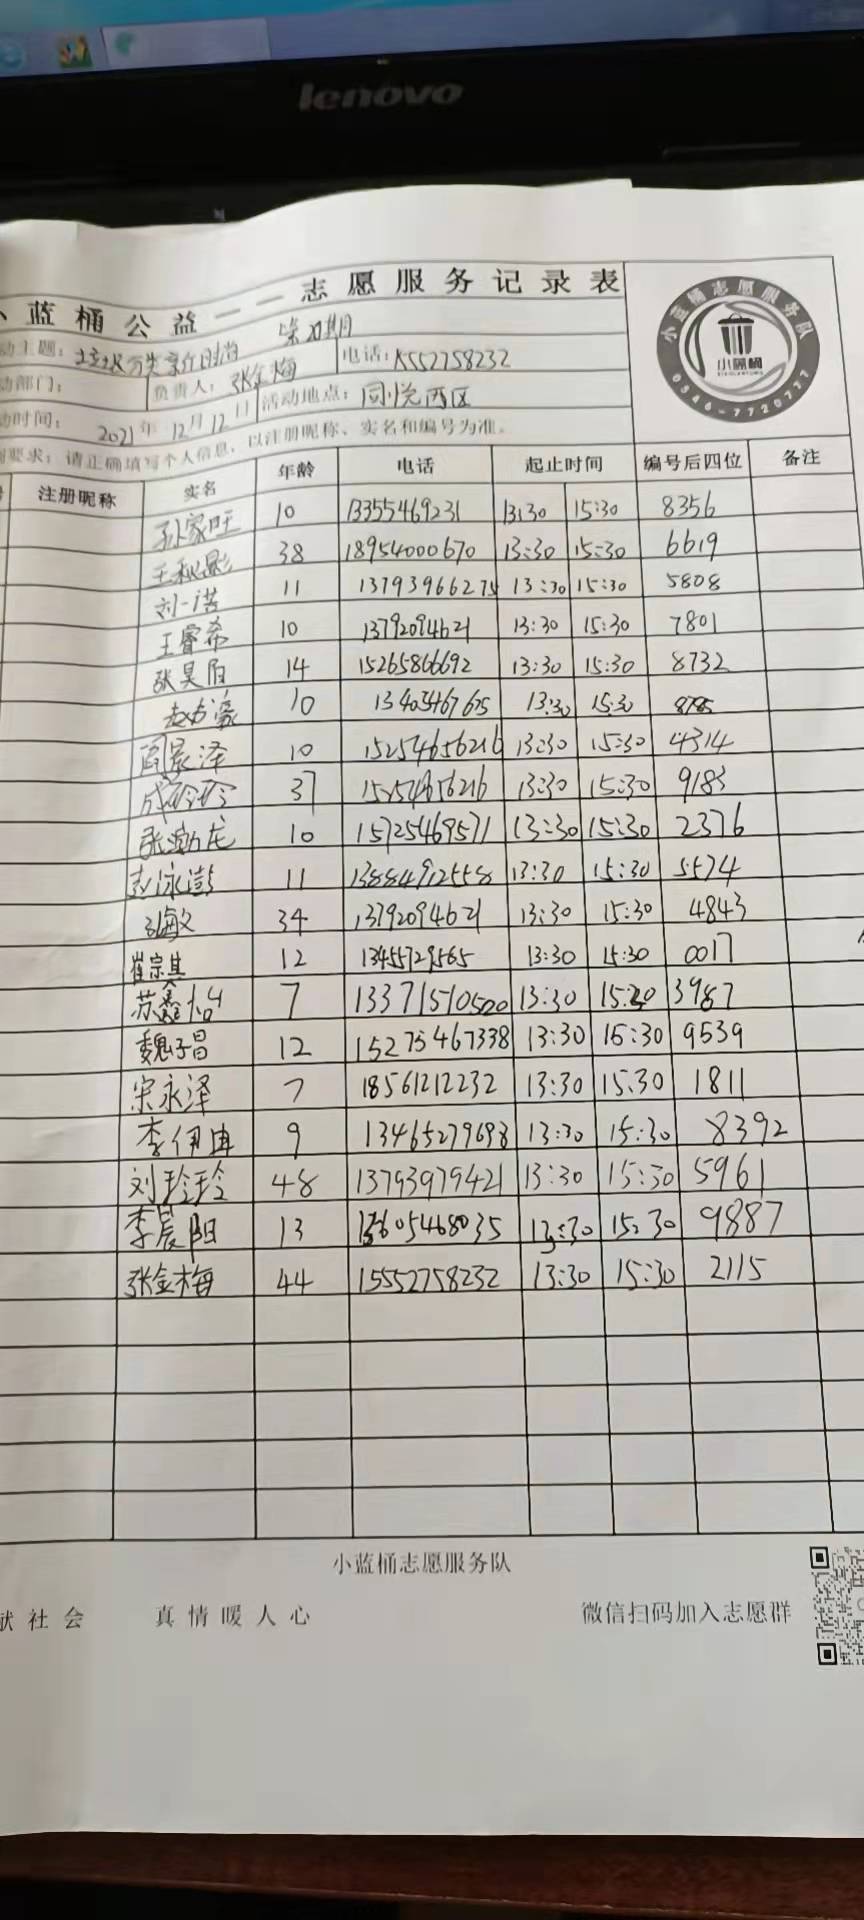 lenovo
小蓝桶公益——志愿服务记录表
动主题：垃圾分类新时尚 期 电话：15552758232
动部门： 负责人：张金梅
动时间：2021年12月12日 活动地点：同悦西区
要求：请正确填写个人信息，以注册昵称、实名和编号为准。
小蓝桶志愿服务队
小蓝桶
0546-7720777
注册昵称 实名 年龄 电话 起止时间 编号后四位 备注
孙家旺 10 13355469231 13:30 15:30 8356
王秋影 38 18954000670 13:30 15:30 6619
刘一诺 11 13793966275 13:30 15:30 5808
王睿希 10 13792094621 13:30 15:30 7801
张昊阳 14 15265866692 13:30 15:30 8732
10 13405467675 13:30 15:30 8785
阎晨泽 10 15254656216 13:30 15:30 4314
成玲玲 37 15254656216 13:30 15:30 9183
张渤龙 10 15725469571 13:30 15:30 2376
彭泳澎 11 13884912558 13:30 15:30 5574
敏 34 13792094621 13:30 15:30 4843
崔宗其 12 13455729565 13:30 15:30 0017
苏鑫怡 7 13371510520 13:30 15:30 3987
魏子昌 12 15275467338 13:30 15:30 9539
宋永泽 7 18561212232 13:30 15:30 1811
李伊冉 9 13465279693 13:30 15:30 8392
刘玲玲 48 13793979421 13:30 15:30 5961
李晨阳 13 13605468035 13:30 15:30 9887
张金梅 44 15552758232 13:30 15:30 2115
小蓝桶志愿服务队
献社会 真情暖人心 微信扫码加入志愿群